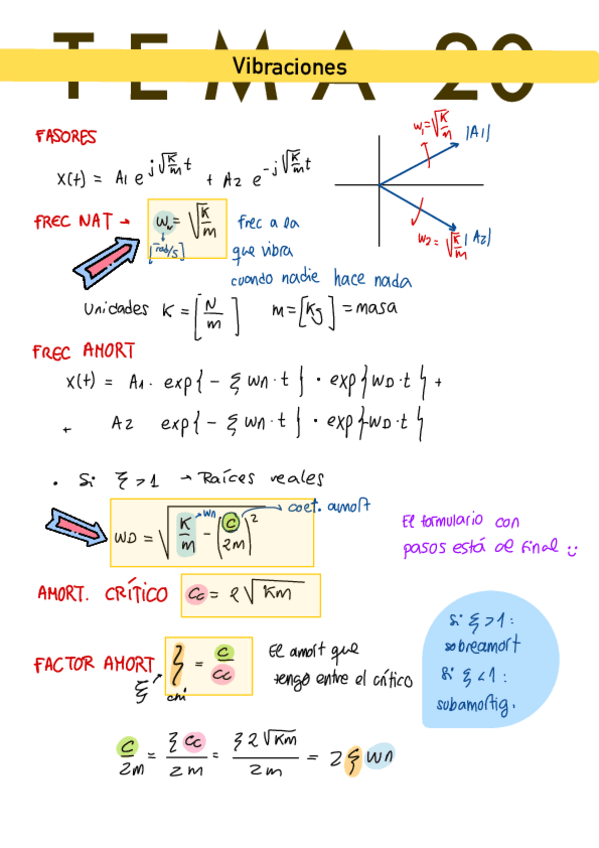 TEMA 20
Vibraciones
FASORES
X(t) = A1 e^{j√(K/m) t} + A2 e^{-j√(K/m) t}
w1 = √(K/m)
|A1|
w2 = √(K/m)
|A2|
FREC NAT → wn = √(K/m)
[rad/s]
frec a la
que vibra
cuando nadie hace nada
Unidades K = [N/m] m = [Kg] = masa
FREC AMORT
X(t) = A1 · exp{- ξ wn · t} · exp{wD · t} +
+ A2 exp{- ξ wn · t} · exp{-wD · t}
· Si ξ > 1 → Raíces reales
wD = √(K/m - (c/2m)^2)
wn
coef. amort
El formulario con
pasos está al final :)
AMORT. CRÍTICO Cc = 2√Km
FACTOR AMORT ξ = c/Cc
ξ chi
El amort que
tengo entre el crítico
Si ξ > 1:
sobreamort
Si ξ < 1:
subamortig.
c/2m = ξ Cc/2m = ξ 2√Km/2m = 2 ξ wn